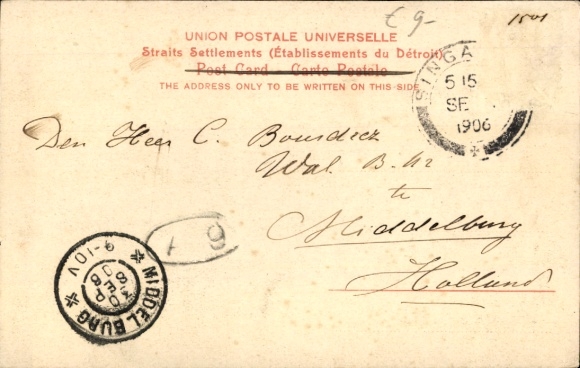 € 9-
1501
UNION POSTALE UNIVERSELLE
Straits Settlements (Établissements du Détroit)
Post Card - Carte Postale
THE ADDRESS ONLY TO BE WRITTEN ON THIS SIDE
SINGA
5 15
SE
1906
Den Heer C.
Wal. B.
te
Middelburg
Holland
MIDDELBURG
9-10V
SEP